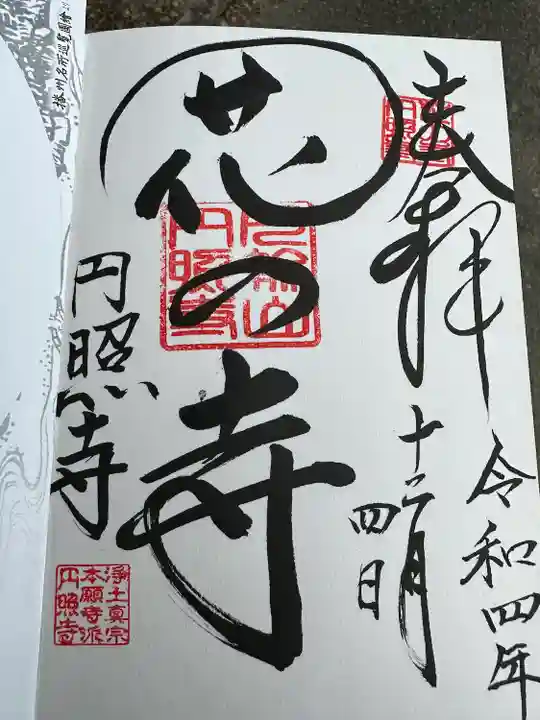 奉拝
令和四年
十二月
四日
花の寺
円照寺
浄土真宗
本願寺派
円照寺
播州名所巡覧図絵